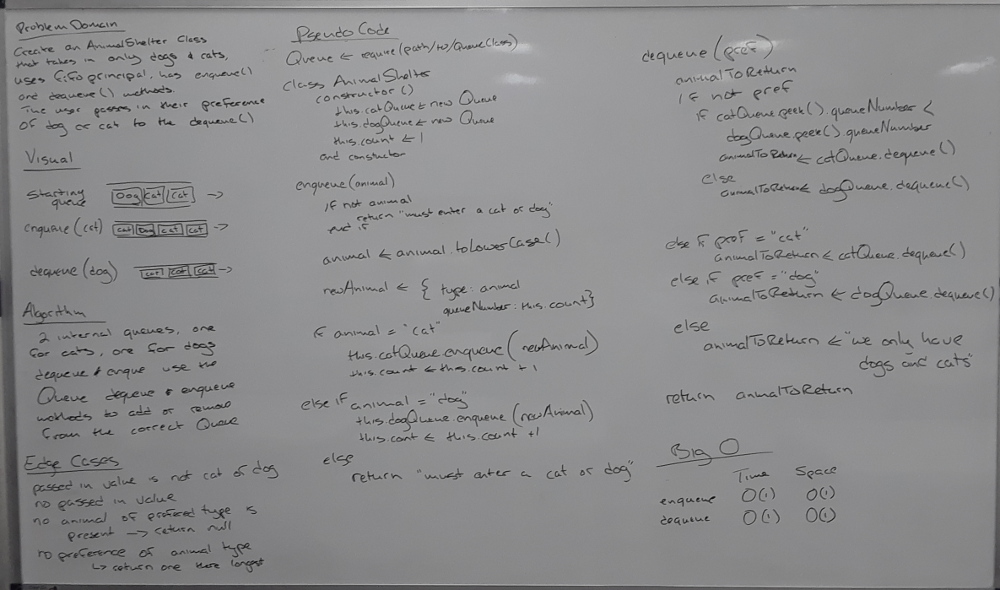 Problem Domain
Create an AnimalShelter Class
that takes in only dogs & cats,
uses fifo principal, has enqueue()
and dequeue() methods.
The user passes in their preference
of dog or cat to the dequeue()
Visual
starting queue
Dog cat cat
enqueue (cat)
cat Dog cat cat
dequeue (dog)
cat cat cat
Algorithm
2 internal queues, one
for cats, one for dogs
dequeue & enque use the
Queue dequeue & enqueue
methods to add or remove
from the correct Queue
Edge Cases
passed in value is not cat or dog
no passed in value
no animal of prefered type is
present -> return null
no preference of animal type
↳ return one there longest
Pseudo Code
Queue ← require(path/to/QueueClass)
class AnimalShelter
constructor ()
this.catQueue ← new Queue
this.dogQueue ← new Queue
this.count ← 1
end constructor
enqueue (animal)
if not animal
return "must enter a cat or dog"
end if
animal ← animal.toLowerCase()
newAnimal ← { type: animal
queueNumber: this.count}
if animal = "cat"
this.catQueue.enqueue (newAnimal)
this.count ← this.count + 1
else if animal = "dog"
this.dogQueue.enqueue (newAnimal)
this.cont ← this.count +1
else
return "must enter a cat or dog"
dequeue (pref)
animalToReturn
if not pref
if catQueue.peek().queueNumber <
dogQueue.peek().queueNumber
animalToReturn ← catQueue.dequeue()
else
animalToReturn ← dogQueue.dequeue()
else if pref = "cat"
animalToReturn ← catQueue.dequeue()
else if pref = "dog"
animalToReturn ← dogQueue.dequeue()
else
animalToReturn ← "we only have
dogs and cats"
return animalToReturn
Big O
Time Space
enqueue O(1) O(1)
dequeue O(1) O(1)